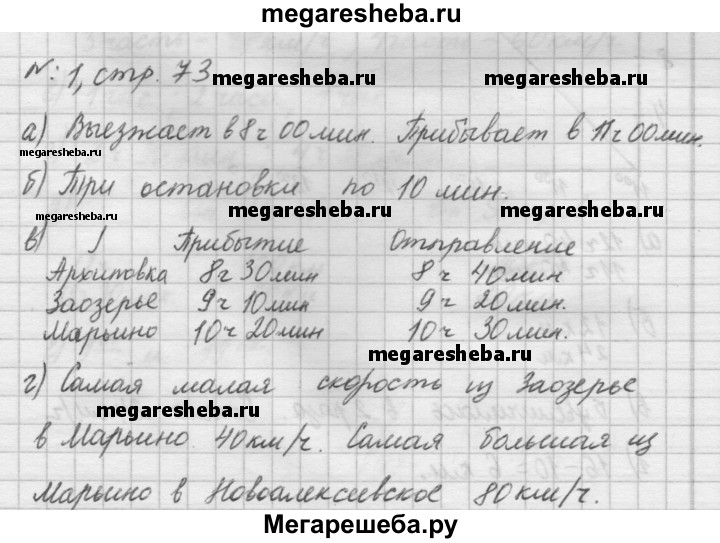 megaresheba.ru
№ 1, стр. 73
megaresheba.ru megaresheba.ru
а) Выезжает в 8ч 00мин. Прибывает в 11ч 00мин.
megaresheba.ru
б) Три остановки по 10 мин.
megaresheba.ru megaresheba.ru megaresheba.ru
в) Прибытие Отправление
Архиповка 8ч 30мин 8 ч 40мин
Заозерье 9ч 10мин 9 ч 20мин.
Марьино 10ч 20мин 10ч 30мин.
megaresheba.ru
г) Самая малая скорость из Заозерье
megaresheba.ru
в Марьино 40км/ч. Самая большая из
Марьино в Новоалексеевское 80км/ч.
Мегарешеба.ру